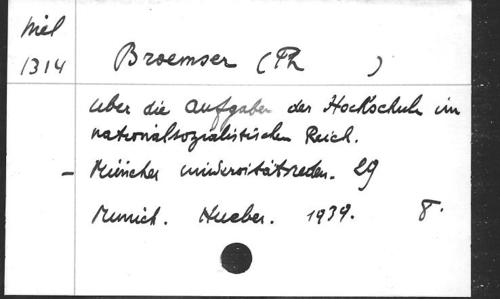 Miel
1314
Broemser (Ph )
Uber die Aufgaben der Hochschule im
nationalsozialistischen Reich.
- Münchner Universitätsreden. 29
Munich. Hueber. 1939. 8.